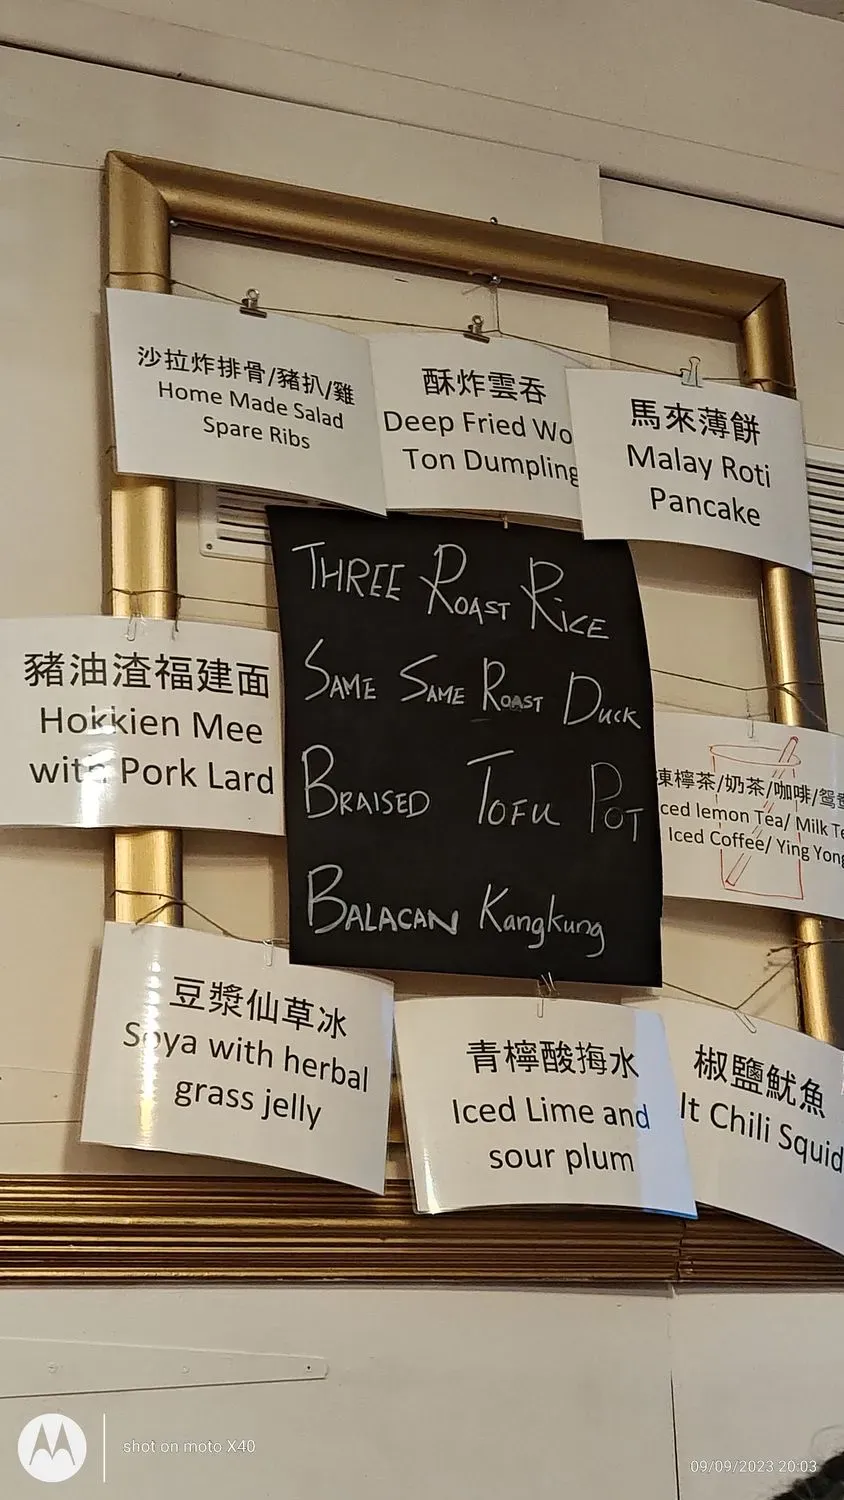 沙拉炸排骨/豬扒/雞
Home Made Salad
Spare Ribs
酥炸雲吞
Deep Fried Wo
Ton Dumpling
馬來薄餅
Malay Roti
Pancake
THREE ROAST RICE
SAME SAME ROAST DUCK
BRAISED TOFU POT
BALACAN Kangkung
豬油渣福建面
Hokkien Mee
with Pork Lard
凍檸茶/奶茶/咖啡/鴛鴦
ced lemon Tea/ Milk Te
Iced Coffee/ Ying Yong
豆漿仙草冰
Soya with herbal
grass jelly
青檸酸梅水
Iced Lime and
sour plum
椒鹽魷魚
lt Chili Squid
shot on moto X40
09/09/2023 20:03